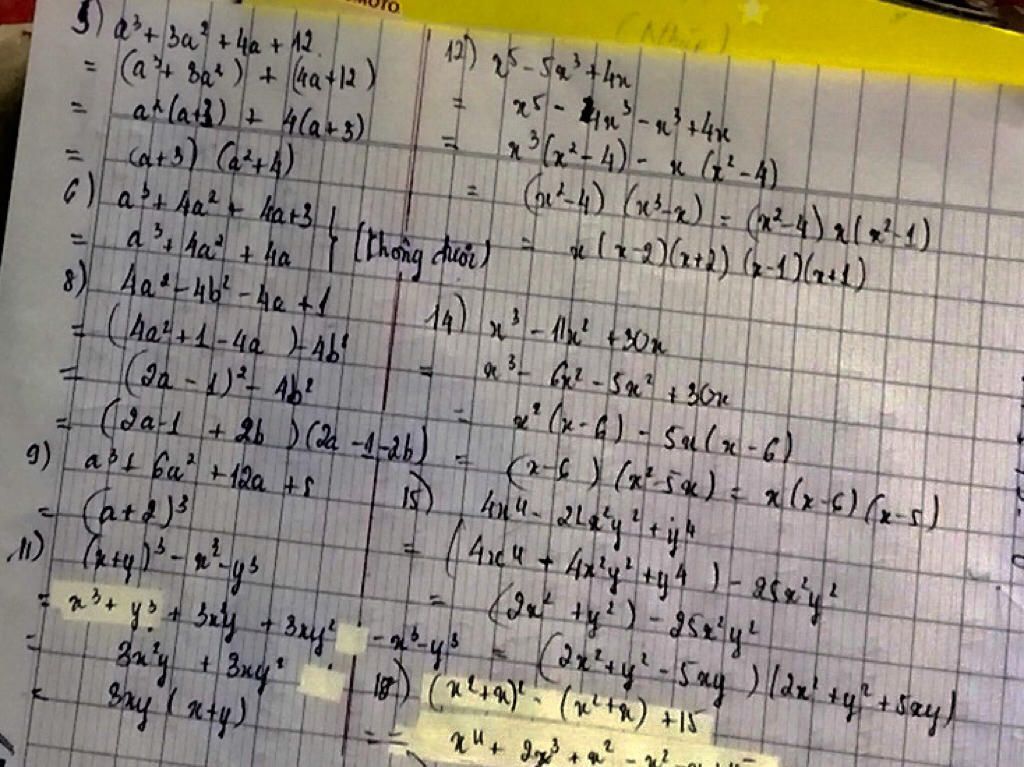 5) a³ + 3a² + 4a + 12
= (a³ + 3a²) + (4a + 12)
= a²(a+3) + 4(a+3)
= (a+3) (a²+4)
6) a³ + 4a² + 4a + 3
= a³ + 4a² + 4a } (không được)
8) 4a² - 4b² - 4a + 1
= (4a² + 1 - 4a) - 4b²
= (2a - 1)² - 4b²
= (2a - 1 + 2b) (2a - 1 - 2b)
9) a³ + 6a² + 12a + 8
= (a+2)³
11) (x+y)³ - x³ - y³
= x³ + y³ + 3x²y + 3xy² - x³ - y³
= 3x²y + 3xy²
= 3xy (x+y)
12) x⁵ - 5x³ + 4x
= x⁵ - 4x³ - x³ + 4x
= x³(x² - 4) - x (x² - 4)
= (x² - 4) (x³ - x) = (x² - 4) x (x² - 1)
= x (x - 2)(x + 2) (x - 1)(x + 1)
14) x³ - 11x² + 30x
= x³ - 6x² - 5x² + 30x
= x² (x - 6) - 5x (x - 6)
= (x - 6) (x² - 5x) = x (x - 6) (x - 5)
15) 4x⁴ - 21x²y² + y⁴
= (4x⁴ + 4x²y² + y⁴) - 25x²y²
= (2x² + y²) - 25x²y²
= (2x² + y² - 5xy) (2x² + y² + 5xy)
18) (x² + x)² - (x² + x) + 15
= x⁴ + 2x³ + x² - x²